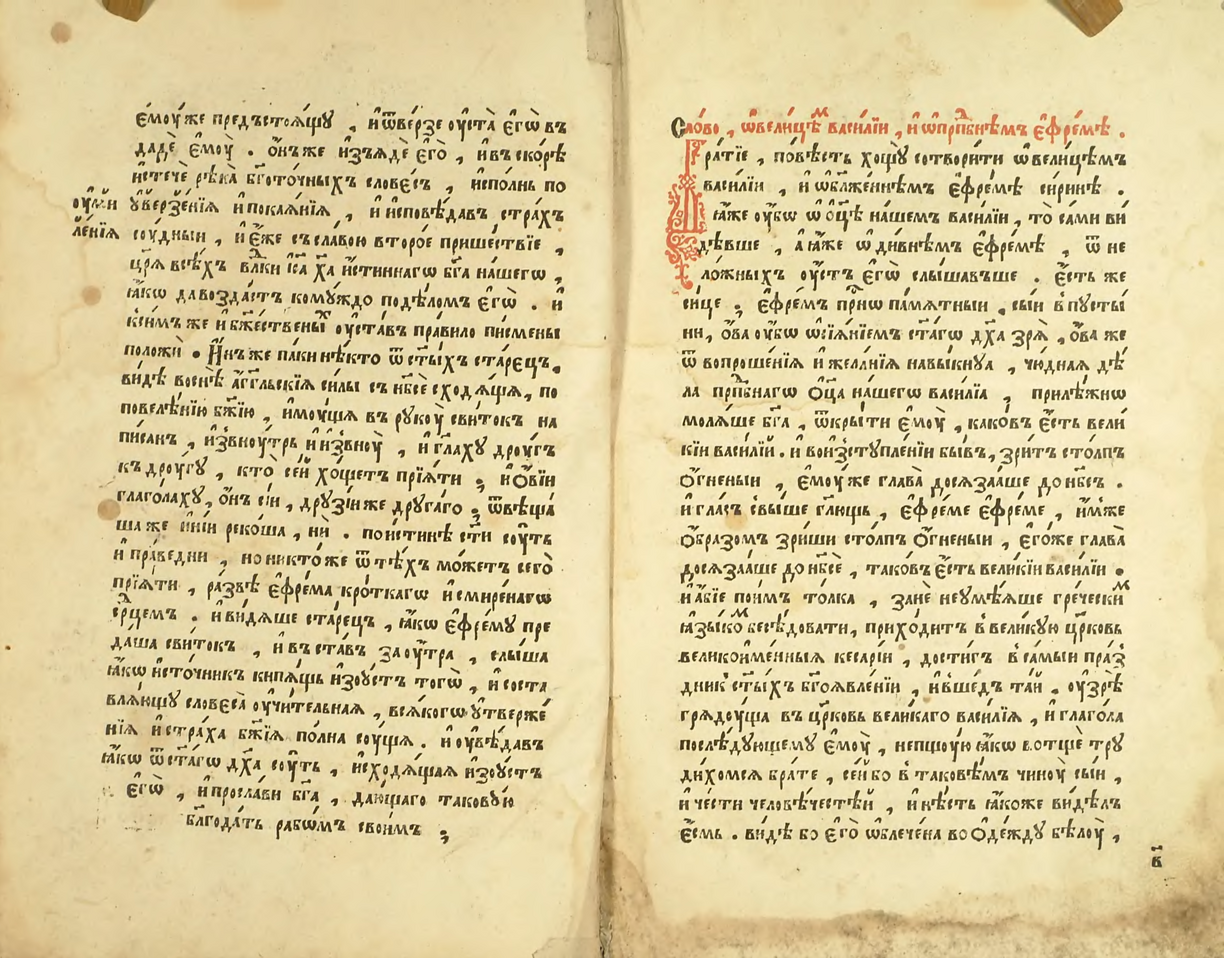 є҆мꙋ́же предъстоѧ́щꙋ , и҆ѿве́рзе оу҆ста̀ є҆гѡ̀ въ
дадѐ є҆мꙋ̀ . о҆́нъже и҆зъѧдѐ є҆го̀ , и҆въско́рѣ
и҆стечѐ рѣка̀ бг҃ото́чныхъ слове́съ , и҆спо́лнь по
оу҆ми ᲂу҆верзе́нїѧ и҆покаѧ́нїѧ , и҆исповѣ́давъ стра́хъ
ле́нїѧ соу́дныи , и҆є҆́же сосла́вою второ́е прише́ствїе ,
цр҃ѧ̀ всѣ́хъ влⷣки і҆са х҃а и҆́стиннагѡ бг҃а на́шегѡ ,
ꙗ҆́кѡ давозда́стъ комꙋ́ждо подѣло́мъ є҆гѡ̀ . и҆
ксимъже и҆бж҃е́ственыⷯ оу҆ста́въ пра́вило пи́смены
положѝ . И҆́нъже па́ки нѣ́кто ѿст҃ы́хъ ста́рецъ,
ви́дѣ воснѣ̀ а҆́гг҃льскїѧ си́лы съ нб҃сѐ сходѧ́щѧ, по
повелѣ́нїю бж҃їю , и҆моу́щѧ въ рꙋкоу̀ сви́токъ на
пи́санъ , и҆звноу́трь и҆и҆звноу̀ , и҆гл҃ахꙋ дроу́гъ
къ дроу́гꙋ , кто̀ се́й хо́щетъ прїѧ́ти ; и҆ѻ҆ви́и
глаго́лахꙋ, о҆́нъ сі́и , дрꙋзі́иже дрꙋга́го . ѿвѣща́
шаже и҆ні́и реко́ша, нѝ . пои́стинѣ ст҃и соу́ть
и҆ пра́ведни , но никто́же ѿтѣ́хъ мо́жетъ сего̀
прїѧ́ти , ра́звѣ є҆фре́ма кро́ткагѡ и҆смире́нагѡ
срⷣцемъ . и҆ви́дѧше ста́рецъ , ꙗ҆́кѡ є҆фре́мꙋ пре
да́ша сви́токъ , и҆ въста́въ заоу́тра , слы́ша
ꙗ҆́кѡ и҆сто́чникъ кипѧ́щь и҆зоу́стъ того̀ , и҆соста
влѧ́ющꙋ словеса̀ оу҆чи́тельнаѧ , всѧ́когѡ ᲂу҆тверже́
нїѧ и҆стра́ха бж҃їѧ по́лна соу́щѧ . и҆оу҆вѣ́давъ
ꙗ҆́кѡ ѿст҃а́гѡ дх҃а соу́ть , и҆сходѧ́щаѧ и҆зоу́стъ
є҆гѡ̀ , и҆просла́ви бг҃а , даю́щаго такову́ю
благода́ть рабѡ́мъ свои́мъ ;
Сло́во , ѡ҆вели́цѣⷨ васи́лїи , и҆ ѡ҆прпⷣбнѣмъ є҆фре́мѣ .
Бра́тїе , по́вѣсть хощꙋ̀ сотвори́ти ѡ҆вели́цѣмъ
васи́лїи , и҆ ѡ҆бл҃же́ннѣмъ є҆фре́мѣ си́ринѣ .
ꙗ҆́же оу҆́бѡ ѡ҆ ѻ҆ц҃ѣ̀ на́шемъ васи́лїи , то са́ми ви́
дѣвше , а҆ ꙗ҆́же ѡ҆ ди́внѣмъ є҆фре́мѣ , ѿ не
ло́жныхъ оу҆́стъ є҆гѡ̀ слы́шавъше . є҆́сть же
си́це ; є҆фре́мъ при́снѡ па́мѧтныи , сы́и в҆пꙋсты́
ни, ѻ҆́ва оу҆́бѡ ѡ҆сїѧ́нїемъ ст҃а́гѡ дх҃а зрѧ̀ , ѻ҆́ва же
ѿ вопроше́нїѧ и҆ жела́нїѧ навы́кнꙋ , чю́днаѧ дѣ́
ла прпⷣбнагѡ ѻ҆ц҃а̀ на́шегѡ васи́лїа , приле́жнѡ
молѧ́ше бг҃а , ѿкры́ти є҆мꙋ̀ , како́въ є҆́сть вели́
кїи васи́лїй . и҆ воиз̾стꙋпле́нїи бы́въ , зри́тъ сто́лпъ
ѻ҆́гненыи , є҆мꙋ́же глава̀ досѧза́аше до нб҃съ .
и҆ гла́съ свы́ше гл҃ющь , є҆фре́ме є҆фре́ме , и҆́мже
ѻ҆́бразомъ зри́ши сто́лпъ ѻ҆́гненыи , є҆го́же глава̀
досѧза́аше до нб҃сѐ , тако́въ є҆́сть вели́кїи васи́лїи .
и҆ а҆́бїе пои́мъ толка̀ , зане́ неумѣ́ѧше гре́ческиⷨ
ꙗ҆зы́коⷨ бесѣ́довати, прихо́дитъ в҆вели́кꙋю цр҃ковь
великоиме́нныѧ кесарі́и , дости́гъ в҆са́мыи пра́з
дникъ ст҃ы́хъ бг҃оѧвле́нїи , и҆вше́дъ та́й . оу҆зрѣ̀
грѧдоу́ща въ цр҃ковь вели́каго васи́лїѧ , и҆ глаго́ла
послѣ́дꙋющемꙋ є҆мꙋ̀ , непщоу́ю ꙗ҆́кѡ вотще́ трꙋ
ди́хомсѧ бра́те , се́й бо в҆ тако́вѣмъ чиноу̀ сы́и ,
и҆ че́сти человѣ́честѣй , и҆ нѣ́сть ꙗ҆́коже ви́дѣлъ
є҆́смь . ви́дѣ бо є҆го̀ ѡ҆блече́на во ѻ҆де́ждꙋ бѣ́лоу ,
в҃